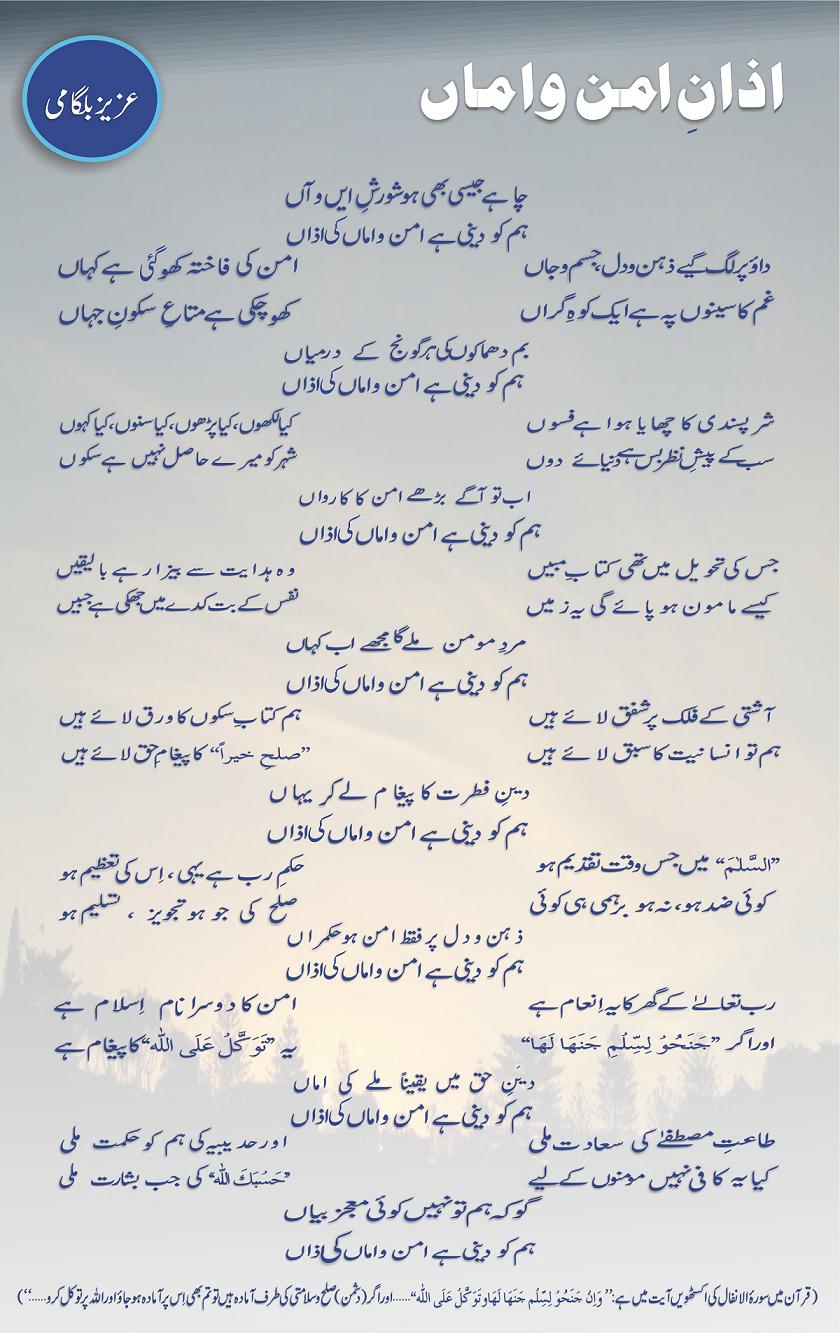 اذانِ امن و اماں
عزیز بلگامی
چاہے جیسی بھی ہو شورشِ ایں و آں
ہم کو دینی ہے امن و اماں کی اذاں
داؤ پر لگ گیے ذہن و دل، جسم و جاں امن کی فاختہ کھو گئی ہے کہاں
غم کا سینوں پہ ہے ایک کوہِ گراں کھو چکی ہے متاعِ سکونِ جہاں
بم دھماکوں کی ہر گونج کے درمیاں
ہم کو دینی ہے امن و اماں کی اذاں
شر پسندی کا چھایا ہوا ہے فسوں کیا لکھوں، کیا پڑھوں، کیا سنوں، کیا کہوں
سب کے پیشِ نظر بس ہے دنیائے دوں شہر کو میرے حاصل نہیں ہے سکوں
اب تو آگے بڑھے امن کا کارواں
ہم کو دینی ہے امن و اماں کی اذاں
جس کی تحویل میں تھی کتابِ مبیں وہ ہدایت سے بیزار ہے بالیقیں
کیسے مامون ہو پائے گی یہ زمیں نفس کے بت کدے میں جھکی ہے جبیں
مردِ مومن ملے گا مجھے اب کہاں
ہم کو دینی ہے امن و اماں کی اذاں
آشتی کے فلک پر شفق لائے ہیں ہم کتابِ سکوں کا ورق لائے ہیں
ہم تو انسانیت کا سبق لائے ہیں ”صلحِ خیراً“ کا پیغامِ حق لائے ہیں
دینِ فطرت کا پیغام لے کر یہاں
ہم کو دینی ہے امن و اماں کی اذاں
”السَّلٰمَ“ میں جس وقت تقدیم ہو حکمِ رب ہے یہی، اِس کی تعظیم ہو
کوئی ضد ہو، نہ ہو برہمی ہی کوئی صلح کی جو ہو تجویز، تسلیم ہو
ذہن و دل پر فقط امن ہو حکمراں
ہم کو دینی ہے امن و اماں کی اذاں
رب تعالےٰ کے گھر کا یہ اِنعام ہے امن کا دوسرا نام اِسلام ہے
اور اگر ”جَنَحُوْ لِسِّلْمِ جَنَهَا لَهَا“ یہ ”تَوَکَّلْ عَلَی اللہ“ کا پیغام ہے
دینِ حق میں یقیناً ملے کی اماں
ہم کو دینی ہے امن و اماں کی اذاں
طاعتِ مصطفےٰ کی سعادت ملی اور حدیبیہ کی ہم کو حکمت ملی
کیا یہ کافی نہیں مومنوں کے لیے ”حَسْبَكَ اللہ“ کی جب بشارت ملی
گو کہ ہم تو نہیں کوئی معجز بیاں
ہم کو دینی ہے امن و اماں کی اذاں
(قرآن میں سورۂ الانفال کی اکسٹھویں آیت میں ہے: ”وَاِنْ جَنَحُوْ لِسِّلْمِ جَنَهَا لَهَا وَتَوَکَّلْ عَلَی اللہ“......اور اگر (دشمن) صلح و سلامتی کی طرف آمادہ ہیں تو تم بھی اِس پر آمادہ ہو جاؤ اور اللہ پر توکل کرو......“)